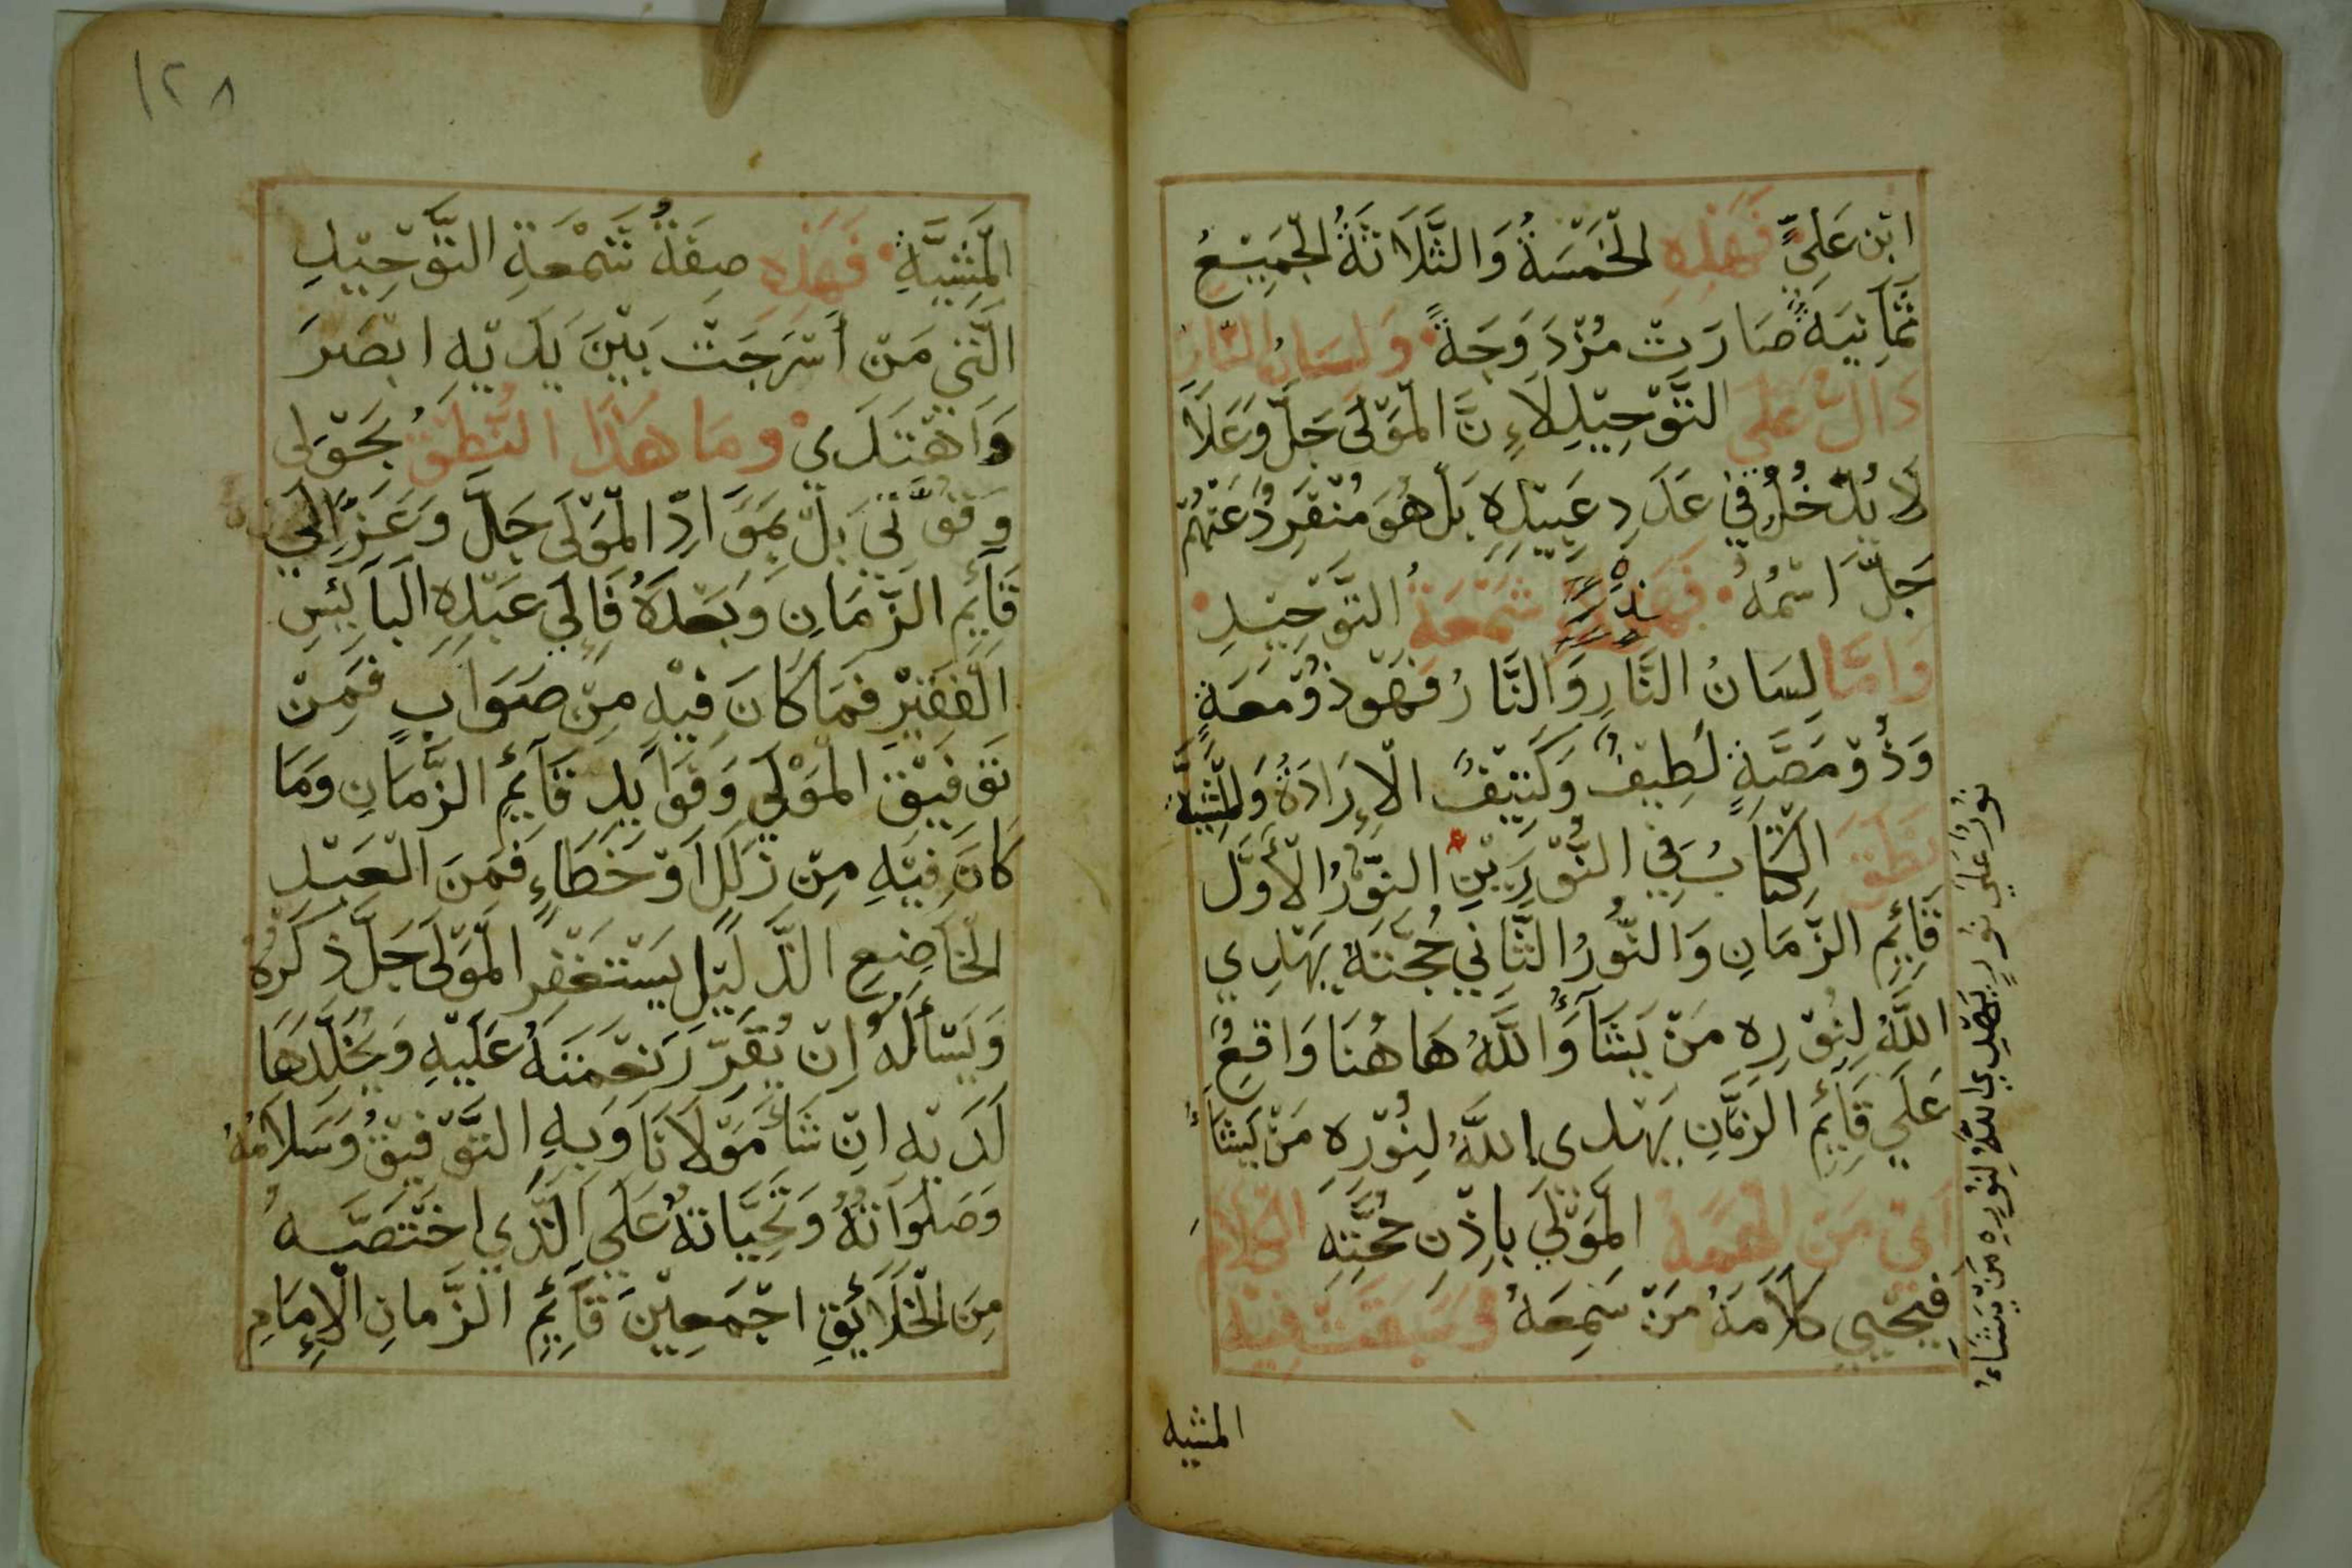 ابْن عَلِيٍّ فَهَذِهِ الْخَمْسَةُ وَالثَّلَاثَةُ الْجَمِيْعُ
ثَمَانِيَةٌ صَارَتْ مُزْدَوَجَةً وَلِسَانُ النَّارِ
دَالٌّ عَلَى التَّوْحِيْدِ لَاءِنَّ الْمَوْلَى جَلَّ وَعَلَا
لَا يُدْخُلُ فِيْ عَدَدِ عَبِيْدِهِ بَلْ هُوَ مُنْفَرِدٌ عَنْهُمْ
جَلَّ اسْمُهُ فَهَذِهِ شَمْعَةُ التَّوْحِيْدِ
وَامَّا لِسَانُ النَّارِ وَالنَّارُ فَهْوَ ذُوْ مَعَةٍ
وَذُوْ مَصَّةٍ لَطِيْفٌ وَكَثِيْفٌ الْإِرَادَةُ وَالْمَشِيَّةُ
نَطَقَ الْكِتَابُ فِي النُّوْرَيْنِ النُّوْرُ الْأَوَّل
قَآئِمِ الزَّمَانِ وَالنُّوْرُ الثَّانِي حُجَّتَهُ يَهْدِي
اللَّهُ لِنُوْرِهِ مَنْ يَشَآءُ وَاللَّهُ هَاهُنَا وَاقِعُ
عَلَي قَآئِمِ الزَّمَانِ يَهْدِي اللَّهُ لِنُوْرِهِ مَنْ يَشَآءُ
اَيْ مَنْ الْهَمَهُ الْمَوْلَي بِاِذْنِ حُجَّتِهِ الْكَلَامَ
فَيُحْيِي كَلَامَهُ مَنْ سَمِعَهُ وَسَبَقَتْ فِيْهِ
المشيه
نُوْرٌ عَلَي نُوْرٍ يَهْدِي اللَّهُ لِنُوْرِهِ مَنْ يَشَآءُ
١٢٨
الْمَشِيَّةِ فَهَذِهِ صِفَةُ شَمْعَةِ التَّوْحِيْدِ
الَّتِي مَنْ أَسْرَجَتْ بَيْنَ يَدَيْهِ ابْصَرَ
وَاهْتَدَي وَمَا هَذَا النُّطْقُ بِحَوْلِي
وَقُوَّتِي بَلْ بِمَوَادِّ الْمَوْلَى جَلَّ وَعَزَّ اِلَي
قَآئِمِ الزَّمَانِ وَبَعْدَهُ فَاِلَي عَبْدِهِ الْبَآئِسِ
الْفَقِيْرِ فَمَا كَانَ فِيْهِ مِنْ صَوَابٍ فَمِنْ
تَوْفِيْقِ الْمَوْلَي وَفَوَايِدِ قَآئِمِ الزَّمَانِ وَمَا
كَانَ فِيْهِ مِنْ زَلَلٍ اَوْ خَطَاءٍ فَمِنَ الْعَبْدِ
الْخَاضِعِ الذَّلِيْلِ يَسْتَغْفِرِ الْمَوْلَى جَلَّ ذِكْرُهُ
وَيَسْأَلُهُ اِنْ يُقَرِّرَ نِعْمَتَهُ عَلَيْهِ وَيُخَلِّدَهَا
لَدَيْهِ اِنْ شَأَ مَوْلَانَا وَبِهِ التَّوْفِيْقُ وَسَلَامُهُ
وَصَلَوَاتُهُ وَتَحِيَّاتهُ عَلَي الَّذِي اخْتَصَّهُ
مِنَ الْخَلَائِقِ اجْمَعِيْنَ قَآئِمِ الزَّمَانِ الْإِمَامِ